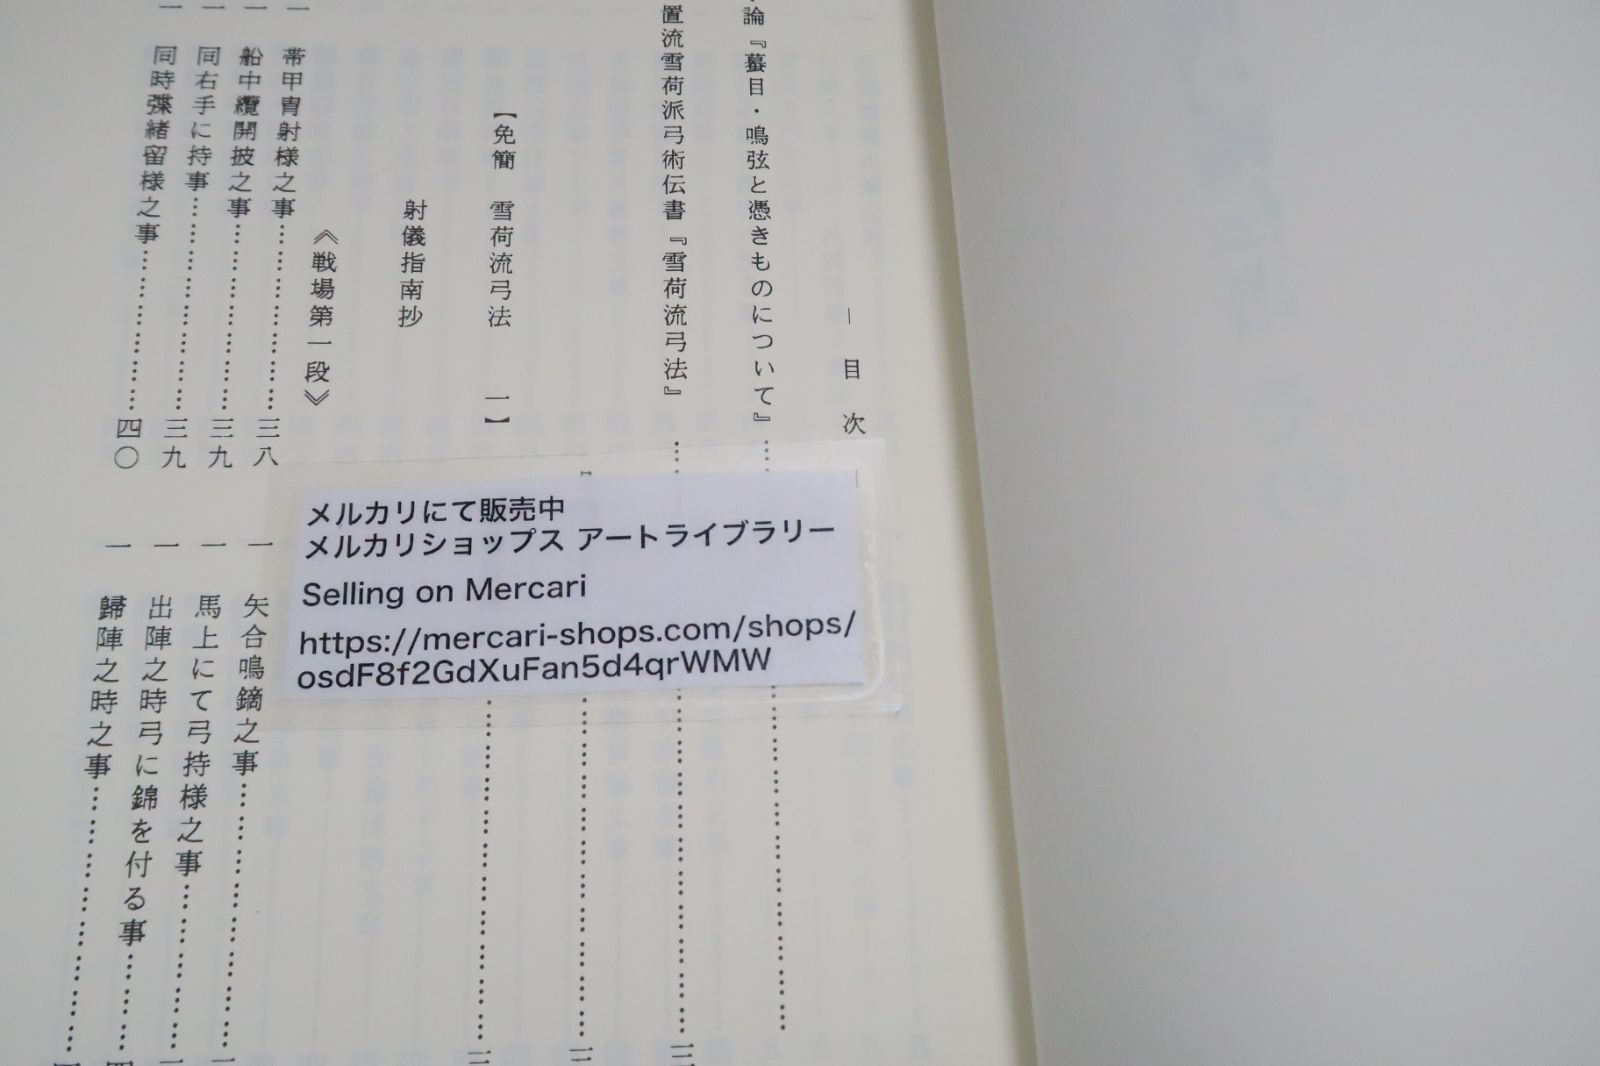 ― 目次
論『蟇目・鳴弦と憑きものについて』
置流雪荷派弓術伝書『雪荷流弓法』
【免簡 雪荷流弓法 一】
射儀指南抄
《戦場第一段》
一 帯甲冑射様之事 三八
一 船中纜開披之事 三九
同右手に持事 三九
一 同時弽緒留様之事 四〇
一 矢合鳴鏑之事
一 馬上にて弓持様之事
一 出陣之時弓に錦を付る事
一 歸陣之時之事
メルカリにて販売中
メルカリショップス アートライブラリー
Selling on Mercari
https://mercari-shops.com/shops/
osdF8f2GdXuFan5d4qrWMW